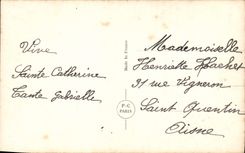 Vive
Sainte Catherine
Tante Gabrielle
P-C
PARIS
Mademoiselle
Henriette Hachet
31 rue Vigneron
Saint Quentin
Aisne